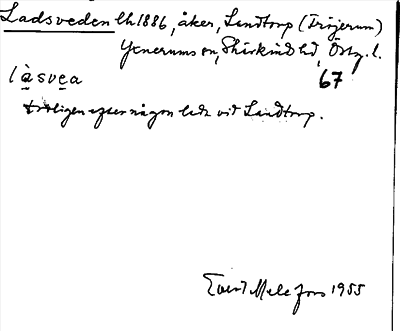 Ladsveden lh 1886, åker, Landtorp (Tröjerum)
Yxnerums sn, Skärkinds hd, Östg. l.
làsvea 67
troligen efter någon lada vid Landtorp.
Evert Melefors 1955